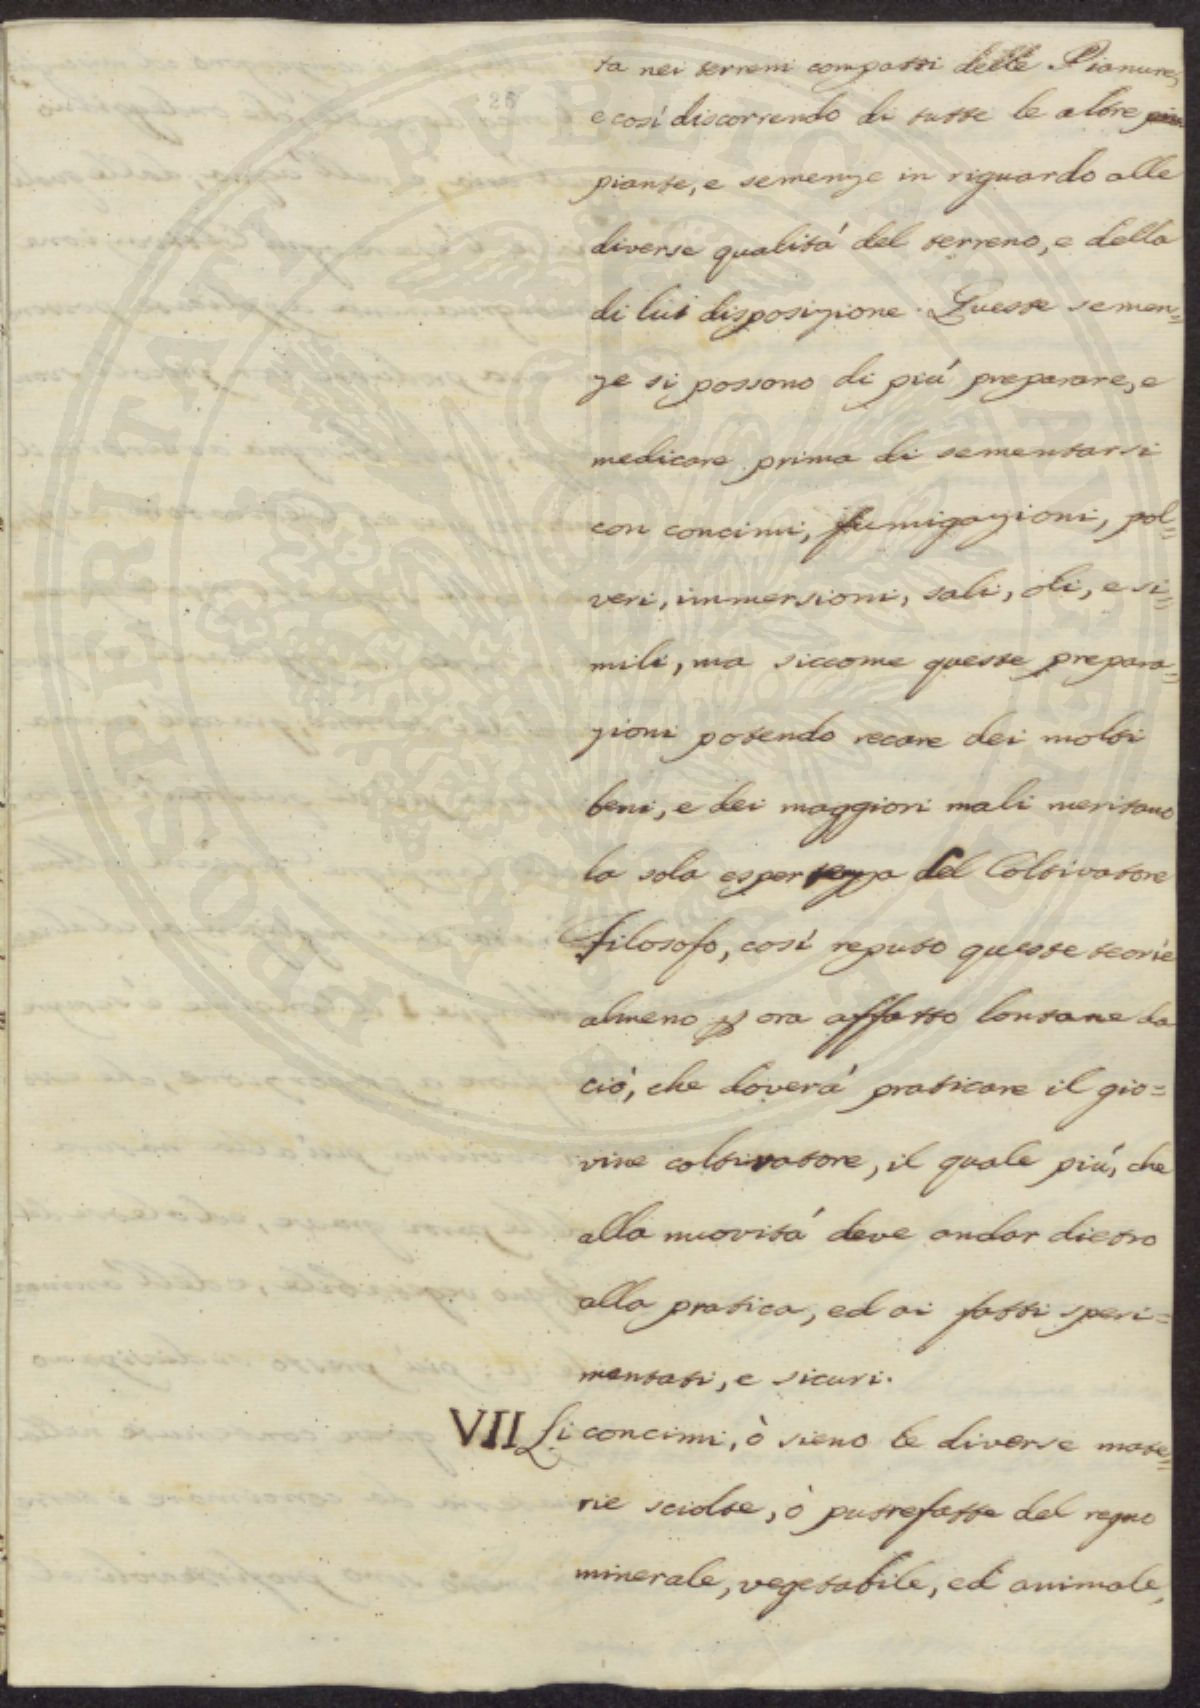 ta nei terreni compatti delle Pianure,
e così discorrendo di tutte le altre
piante, e semenze in riguardo alle
diverse qualitá del terreno, e della
di lui disposizione. Queste semen=
ze si possono di piú preparare, e
medicare prima di sementarsi
con concimi, fumigazioni, pol=
veri, immersioni, sali, oli, e si=
mili, ma siccome queste prepara=
zioni potendo recare dei molti
beni, e dei maggiori mali meritano
la sola esperienza del Coltivatore
filosofo, così reputo queste teorie
almeno ꝑ ora affatto lontane da
ció, che doverá praticare il gio=
vine coltivatore, il quale piú, che
alla nuovitá deve andar dietro
alla pratica, ed ai fatti speri=
mentati, e sicuri.
VII Li concimi, ò sieno le diverse mate=
rie sciolte, ò putrefatte del regno
minerale, vegetabile, ed animale,